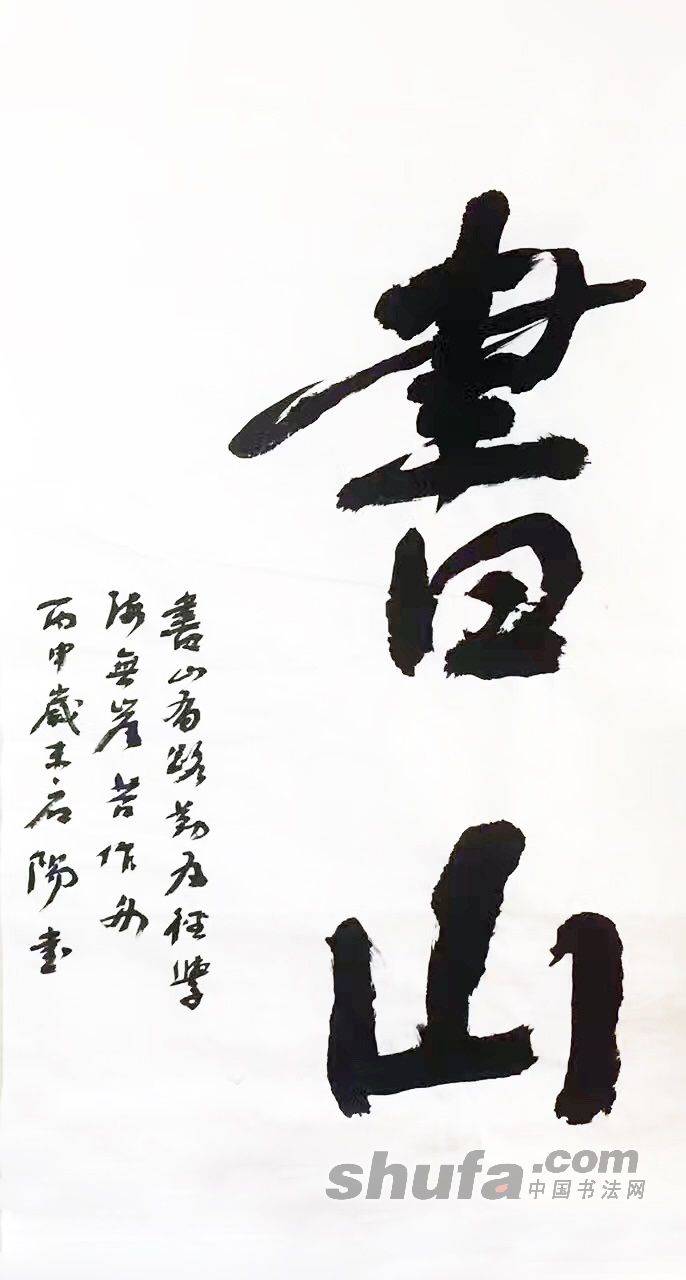 書山
書山有路勤为径學
海無崖苦作舟
丙申歲末启陽书
shufa.com
中国书法网